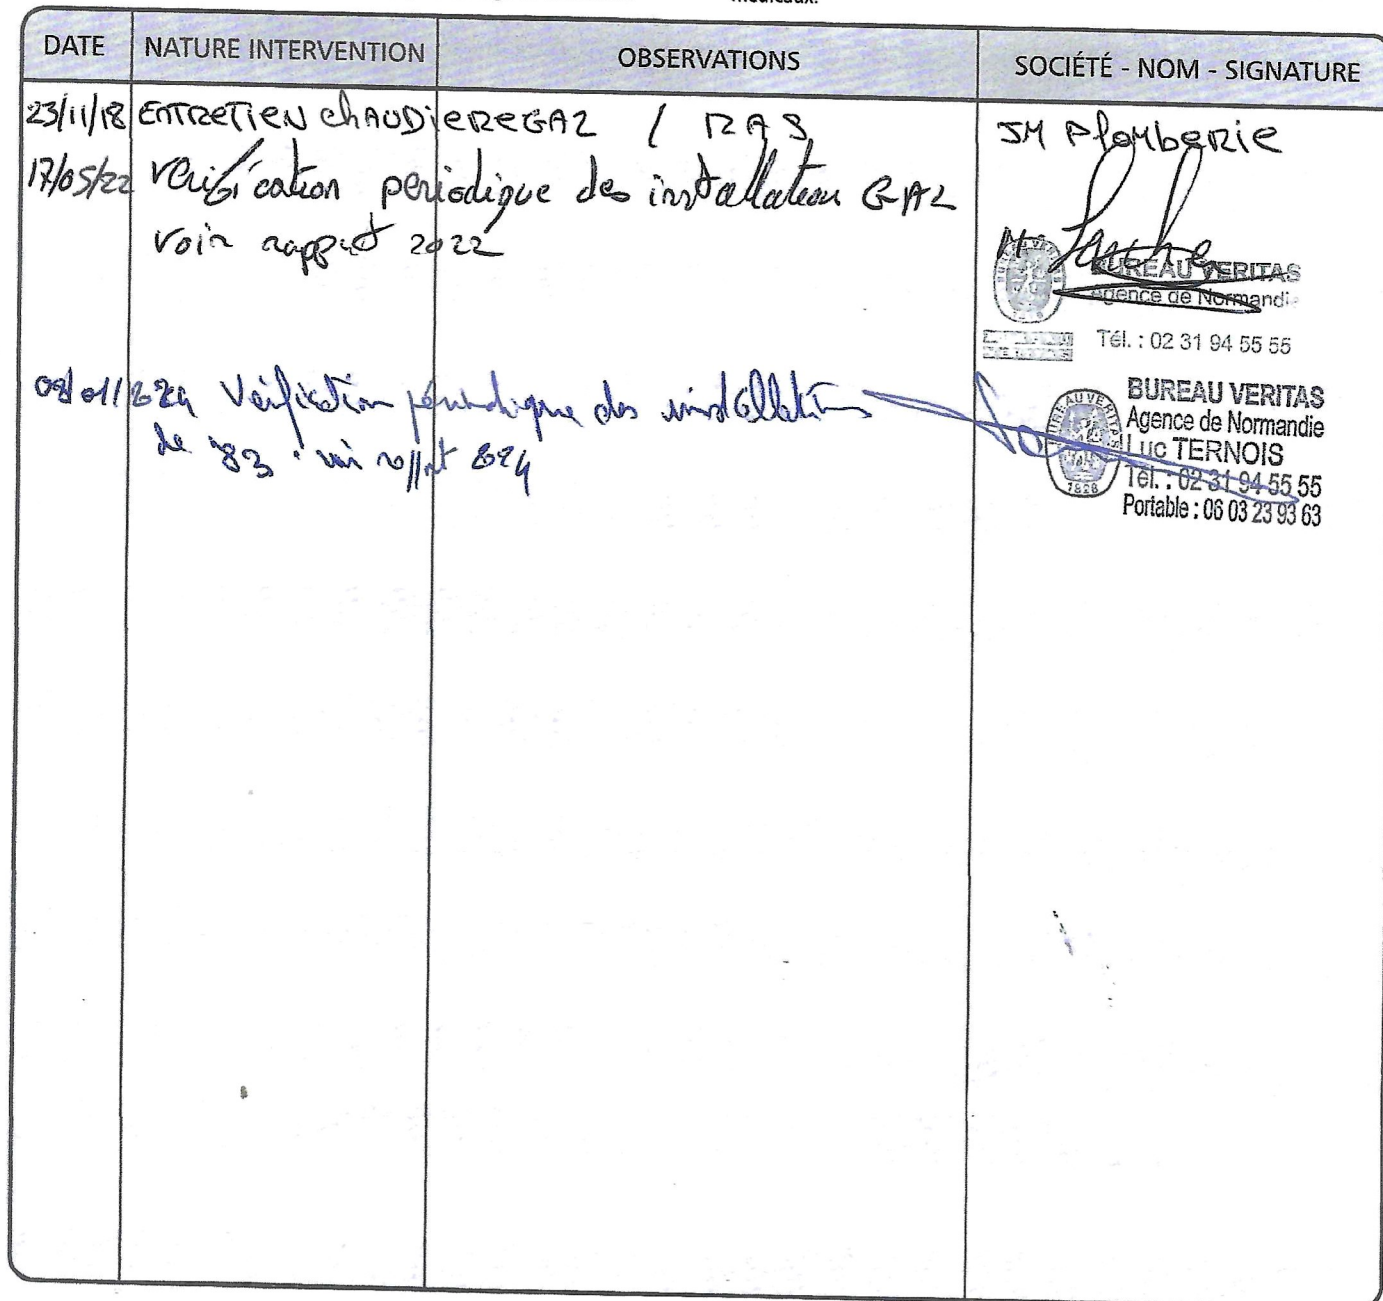 médicaux.
DATE NATURE INTERVENTION OBSERVATIONS SOCIÉTÉ - NOM - SIGNATURE
23/11/18 ENTRETIEN chAUDIEREGAZ / RAS JM Plomberie
17/05/22 Verification periodique des installation GAZ
voir rapport 2022
BUREAU VERITAS
Agence de Normandie
Tél. : 02 31 94 55 55
Vérification périodique des installations
de gaz : voir rapport 2024
BUREAU VERITAS
Agence de Normandie
Luc TERNOIS
Tél. : 02 31 94 55 55
Portable : 06 03 23 93 63
1828